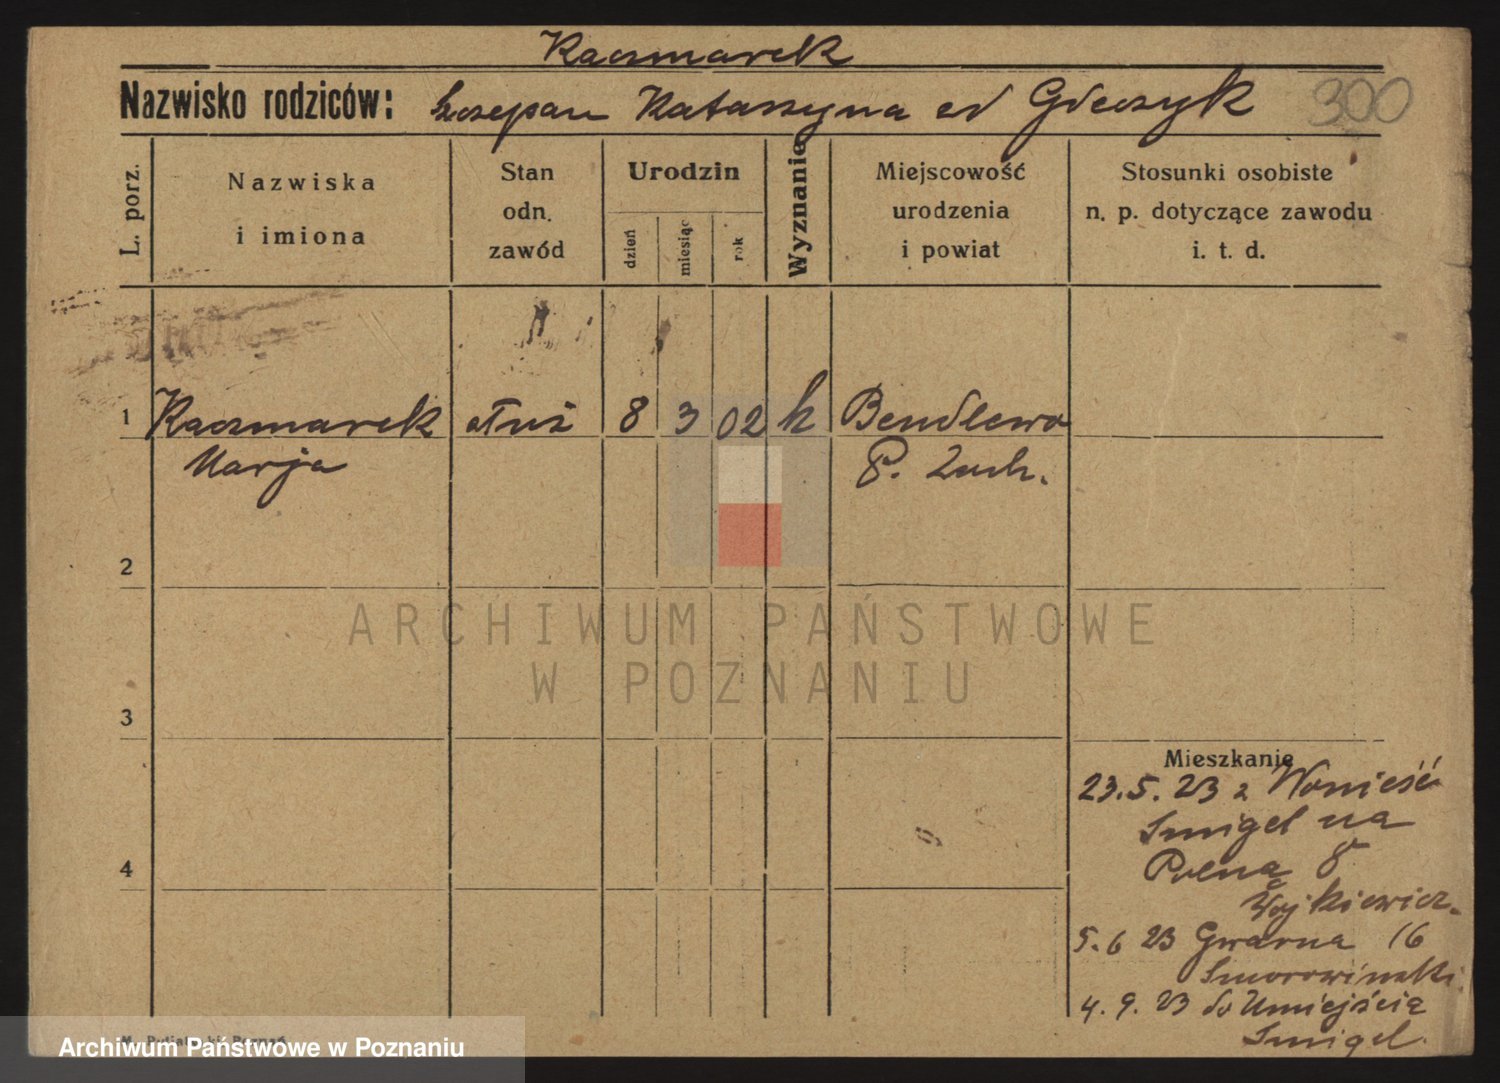 Kaczmarek
Nazwisko rodziców: Szczepan Katarzyna ed 300
L. porz.
Nazwiska
i imiona
Stan
odn.
zawód
Urodzin
dzień
miesiąc
rok
Wyznanie
Miejscowość
urodzenia
i powiat
Stosunki osobiste
n. p. dotyczące zawodu
i. t. d.
1 Kaczmarek służ 8 3 02 k Bendlewo
Marja P. Zach.
2
ARCHIWUM PAŃSTWOWE
W POZNANIU
3
Mieszkanie
23.5.23 z Wonieść
Smigel na
4 Polną 8
Wojkiewicz.
5.6 23 Gwarna 16
Smorowinski.
4.9.23 do
Smigel.
Archiwum Państwowe w Poznaniu